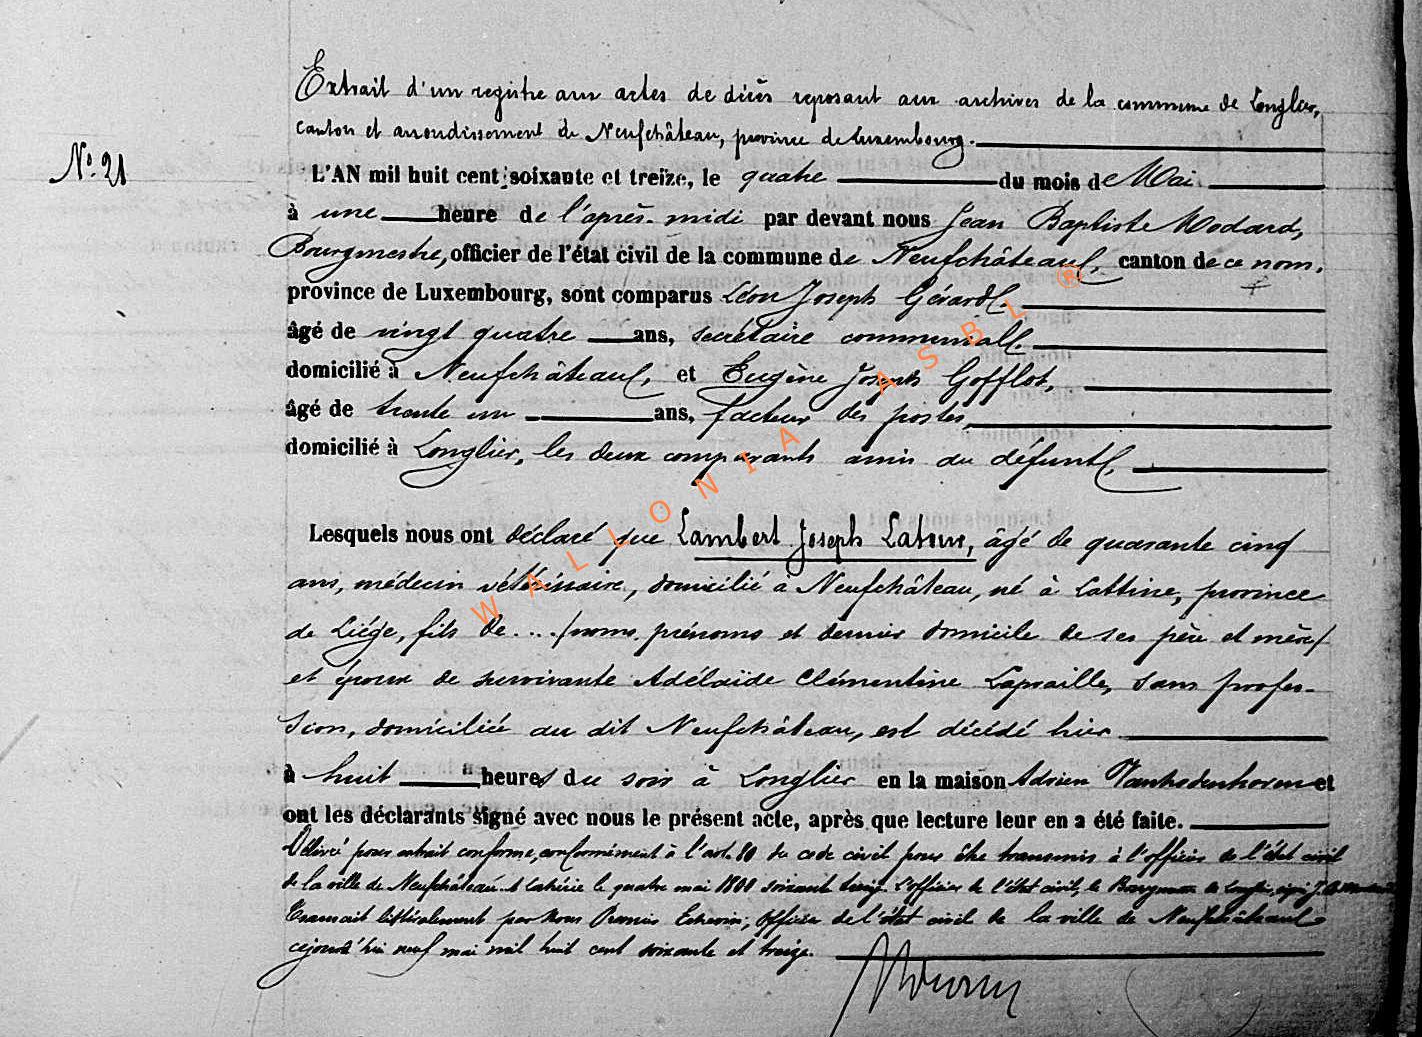 Extrait d'un registre aux actes de décès reposant aux archives de la commune de Longlier,
canton et arrondissement de Neufchâteau, province de Luxembourg.
N° 21
L'AN mil huit cent soixante et treize, le quatre du mois de Mai
à une heure de l'après-midi par devant nous Jean Baptiste Modard,
Bourgmestre, officier de l'état civil de la commune de Neufchâteau, canton de ce nom,
province de Luxembourg, sont comparus Léon Joseph Gérard,
âgé de vingt quatre ans, secrétaire communal,
domicilié à Neufchâteau, et Eugène Joseph Gofflot,
âgé de trente un ans, facteur des postes,
domicilié à Longlier, les deux comparants amis du défunt,
Lesquels nous ont déclaré que Lambert Joseph Latour, âgé de quarante cinq
ans, médecin vétérinaire, domicilié à Neufchâteau, né à Lattine, province
de Liége, fils de ... /noms, prénoms et dernier domicile de ses père et mère/
et époux de survivante Adélaïde Clémentine Lapraille, sans profes-
sion, domiciliée au dit Neufchâteau, est décédé hier
à huit heures du soir à Longlier en la maison Adrien et
ont les déclarants signé avec nous le présent acte, après que lecture leur en a été faite.
Délivré pour extrait conforme, conformément à l'art. 80 du code civil pour être transmis à l'officier de l'état civil
de la ville de Neufchâteau. à Longlier le quatre mai 1800 soixante treize. L'officier de l'état civil, le Bourgmestre de Longlier,
Transcrit littéralement par Nous Premier Echevin, Officier de l'état civil de la ville de Neufchâteau
cejourd'hui neuf mai mil huit cent soixante et treize.
WALLONIA ASBL ®